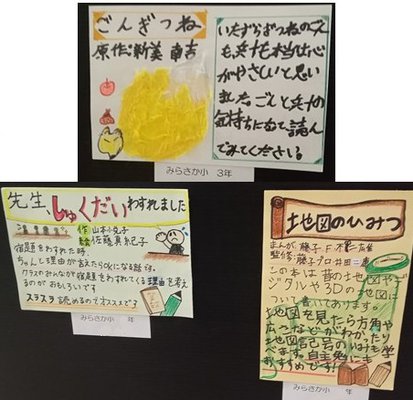 ごんぎつね
原作:新美 南吉
いたずらぎつねのごん
も、兵十も本当は心
がやさしいと思い
ました。ごんと兵十の
気持ちになって読ん
でみてください。
みらさか小 3年
先生、しゅくだいわすれました
作 山本小丸子
絵 佐藤真紀子
宿題をわすれた時、
ちゃんと理由が言えたらOKになる話です。
クラスのみんなが宿題をわすれてくる理由を考え
るのがおもしろいです
スラスラ読めるのでオススメです
みらさか小 年
地図のひみつ
まんが 藤子 F 不二
監修:藤子プロ 井田
この本は昔の地図や
ジタルや3Dの地図に
ついて書いてあります。
地図を見たら方角や
広さなどがわかったり
地図記号のいみも学
べます。自主勉にも
おすすめです!
みらさか小 年